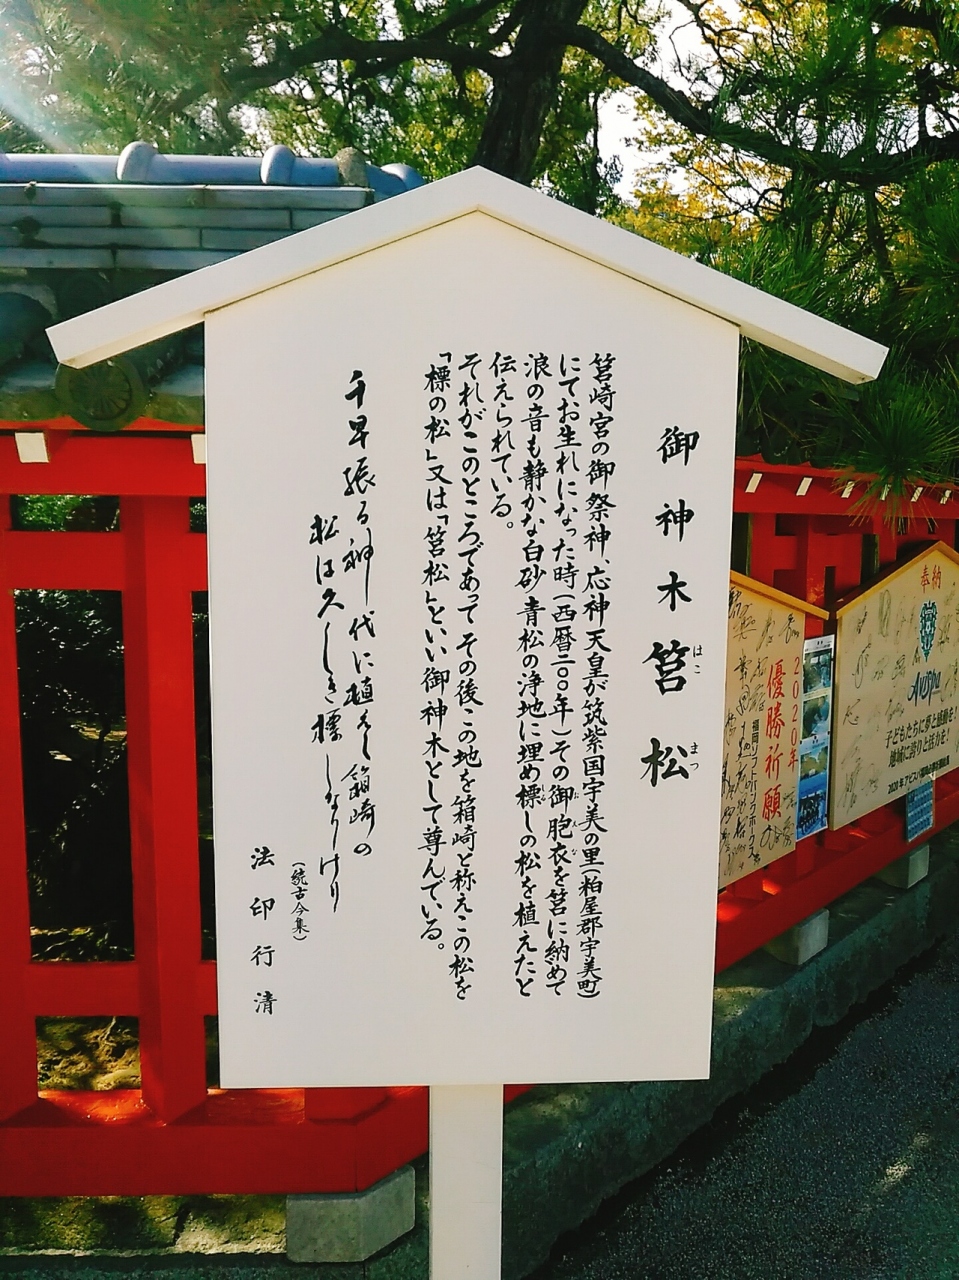 御神木筥松
はこ まつ
筥崎宮の御祭神、応神天皇が筑紫国宇美の里(粕屋郡宇美町)
にてお生れになった時(西暦二〇〇年)その御胞衣を筥に納めて
お な
浪の音も静かな白砂青松の浄地に埋め標しの松を植えたと
しる
伝えられている。
それがこのところであって その後 この地を箱崎と称えこの松を
「標の松」又は「筥松」といい御神木として尊んでいる。
千早振る神代に植えし箱崎の
松は久しき標しなりけり
(続古今集)
法印行清
2020年
優勝祈願
福岡ソフトバンクホークス
奉納
Avispa
子どもたちに夢と感動を!
地域に誇りと活力を!